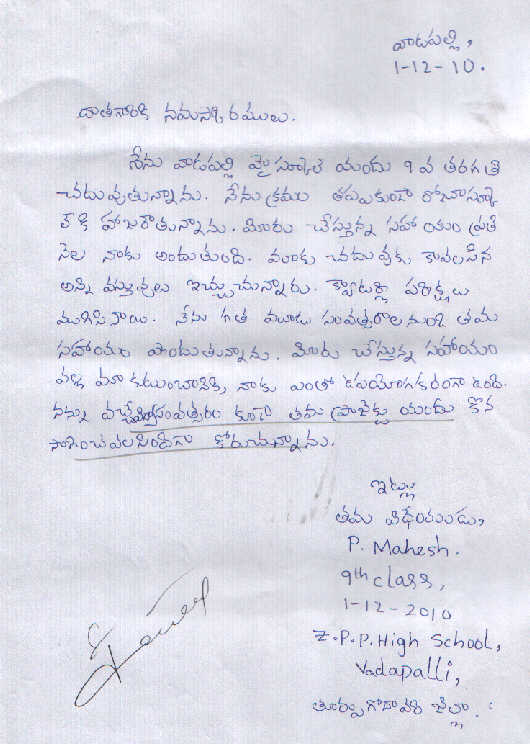 వాడపల్లి,
1-12-10.
దాతగారికి నమస్కారములు.
నేను వాడపల్లి హైస్కూల్ యందు 9 వ తరగతి
చదువుతున్నాను. నేను క్రమం తప్పకుండా రోజూ స్కూ
ల్ కి హాజరౌతున్నాను. మీరు చేస్తున్న సహాయం ప్రతి
నెల నాకు అందుతుంది. మాకు చదువుకు కావలసిన
అన్ని వస్తువులు ఇచ్చుచున్నారు. క్వార్టర్లీ పరీక్షలు
ముగిసినాయి. నేను గత మూడు సంవత్సరాల నుండి తమ
సహాయం పొందుతున్నాను. మీరు చేస్తున్న సహాయం
వల్ల మా కుటుంబానికి, నాకు ఎంతో ఉపయోగకరంగా ఉంది.
నన్ను వచ్చే సంవత్సరం కూడా తమ ప్రాజెక్టు యందు కొన
సాగించవలసిందిగా కోరుచున్నాను.
ఇట్లు
తమ విధేయుడు,
P. Mahesh.
9th class,
1-12-2010
Z.P.P. High School,
Vadapalli,
తూర్పుగోదావరి జిల్లా.